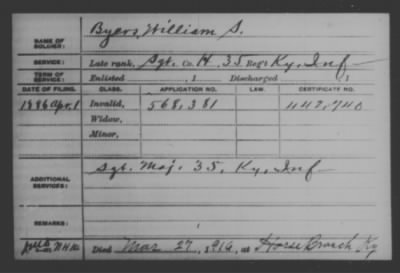 NAME OF SOLDIER: Byers, William S.
SERVICE: Late rank, Sgt. Co. H, 35 Reg't Ky. Inf
TERM OF SERVICE: Enlisted , 1 Discharged , 1
DATE OF FILING. CLASS. APPLICATION NO. LAW. CERTIFICATE NO.
1886 Apr. 1 Invalid, 568,381 447,740
Widow,
Minor,
ADDITIONAL SERVICES: Sgt. Maj. 35, Ky. Inf
REMARKS:
Died Mar 27, 1916, at Horse Branch Ky